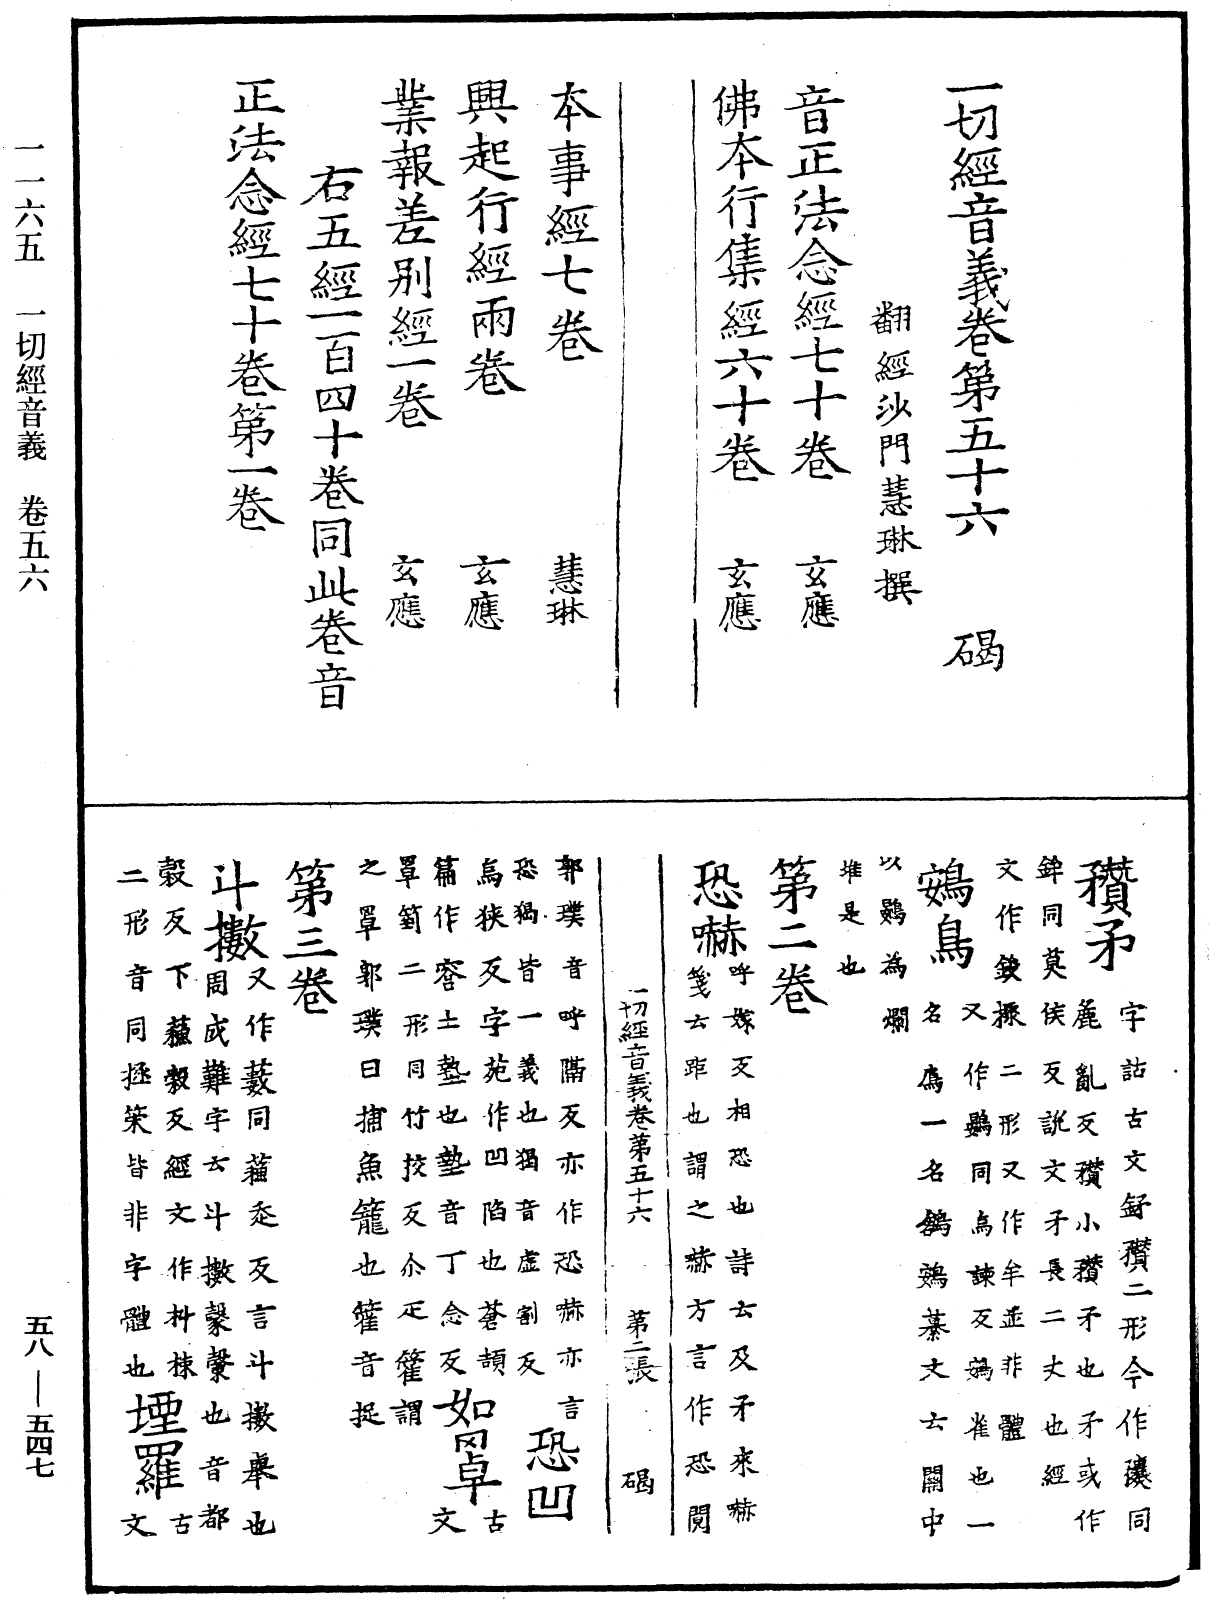 一一六五　一切經音義　卷五六
五八——五四七
一切經音義卷第五十六　碣
翻經沙門慧琳撰
音正法念經七十卷　玄應
佛本行集經六十卷　玄應
本事經七卷　慧琳
興起行經兩卷　玄應
業報差別經一卷　玄應
右五經一百四十卷同此卷音
正法念經七十卷第一卷
䂎矛
字詁古文錄䂎二形今作穳同
麁亂反䂎小䂎矛也矛或作
鉾同莫侯反説文矛長二丈也經
文作鋑䂎二形又作牟並非體
鴳鳥
又作鷃同烏諫反鴳雀也一
名鳸一名鴳纂文云關中
以鷃為爛
堆是也
第二卷
恐嚇
呼嫁反相恐也詩云反予來嚇
箋云距也謂之嚇方言作恐閱
一切經音義卷第五十六　第二張　碣
郭璞音呼隔反亦作恐嚇亦言
恐猲皆一義也猲音虛割反
恐凹
烏狹反字苑作凹陷也蒼頡
篇作容土墊也墊音丁念反
如罩
古文
罩䈇二形同竹挍反尒疋籗謂
之罩郭璞曰捕魚籠也籗音捉
第三卷
斗擻
又作藪同蘓走反言斗擻舉也
周成難字云斗擻㲉㲉也音都
穀反下蘓穀反經文作枓揀
二形音同拯策皆非字體也
堙羅
古文